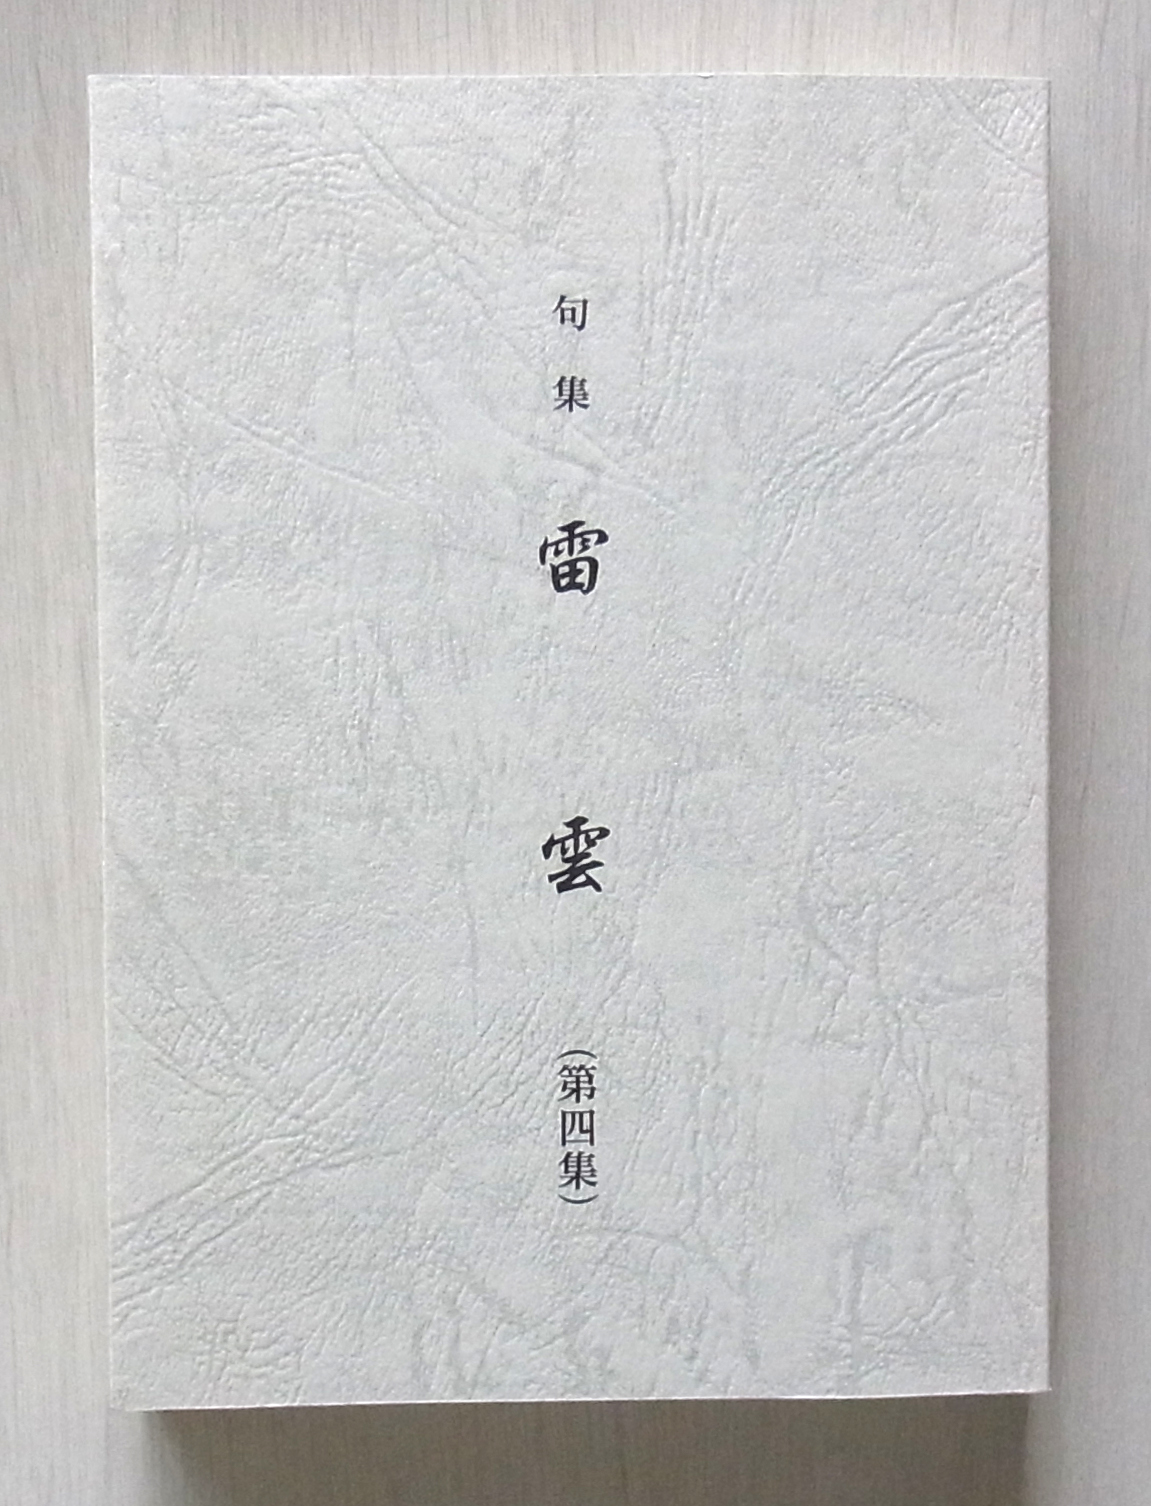 句集
雷雲
(第四集)